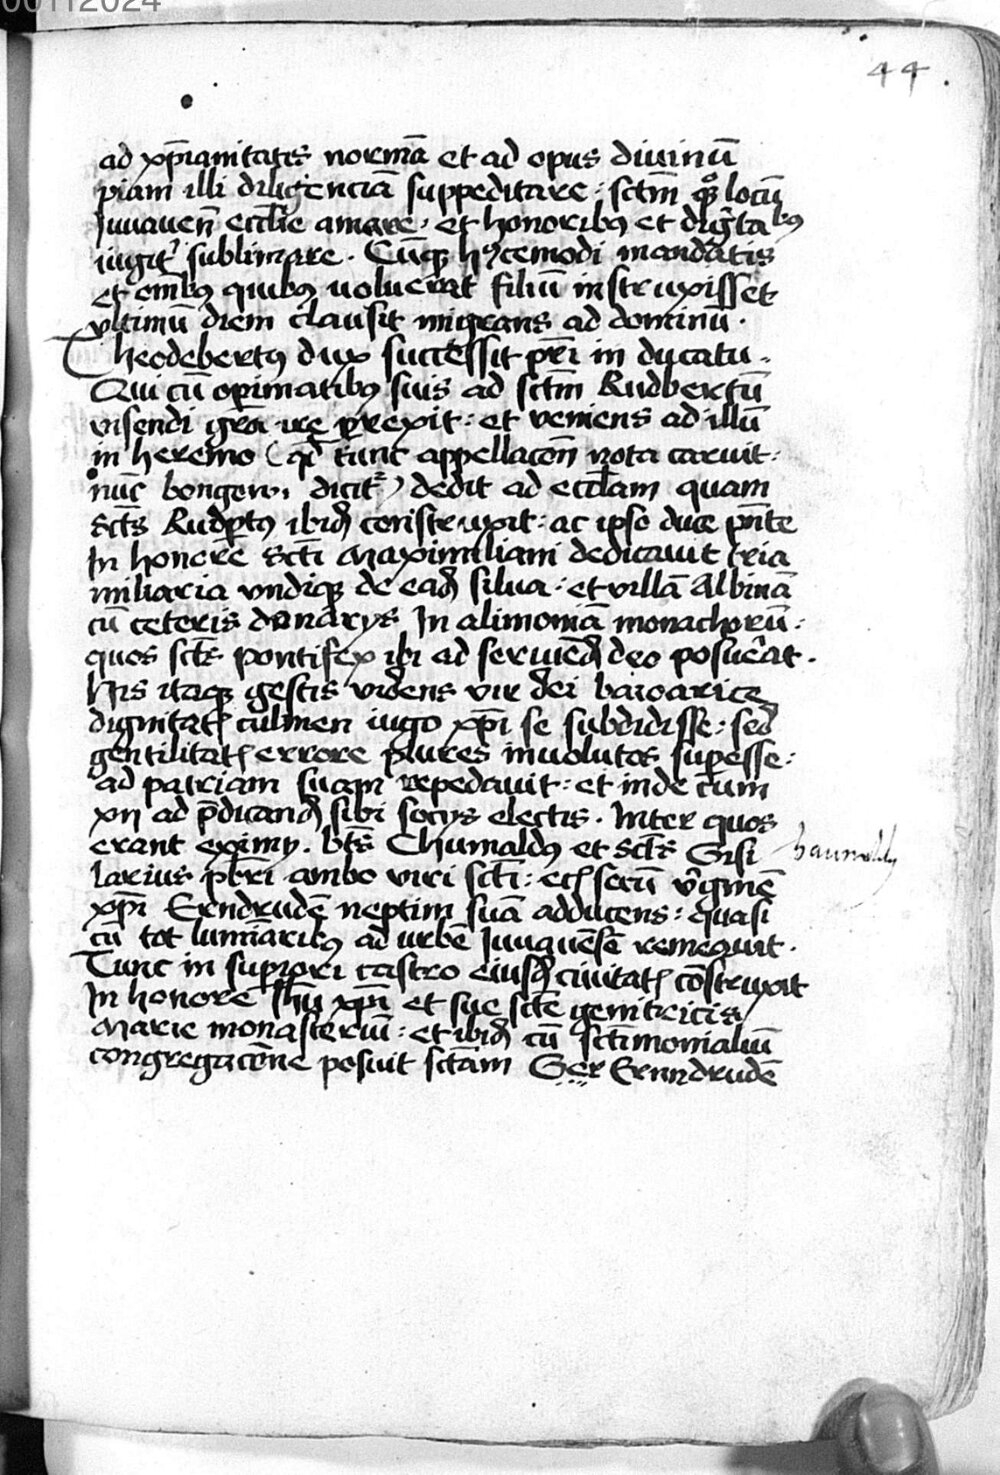 00112024
44
ad xp̄ianitatis normā et ad opus diuinū
piam illi diligenciā suppeditare : sctm̄ qͦꝫ locū
Iuuaueñ eccl̄ie amare · et honoribꝰ et dig̃tabꝰ
iugit᷑ sublimare . Cūqꝫ hꝰcemodi mandatis
et om̄ibꝰ quibꝰ uoluerat filiū instruxisset
vltimū diem clausit migrans ad dominū .
Theodebertꝰ dux successit pr̄i in ducatu .
Qui cū optimatibꝰ suis ad sctm̄ Rudbertū
visendi gr̄a ire perrexit : et veniens ad illū
in heremo ( qd̄ tunc appellacōn nota caruit :
nūc bongew, dicit᷑ ) dedit ad eccl̄iam quam
Sct̄s Rudꝑtꝰ ibid̄ construxit : ac ipso duce pn̄te
In honore Sct̄i Maximiliani dedicauit tria
miliaria vndiqꝫ de ead̄ silua : et villā Albinā
cū ceteris donarijs In alimoniā monachorū :
quos sct̄s pontifex ibi ad seruiēd̄ deo posuerat .
His itaqꝫ gestis videns vir dei baioarice
dignitatꝭ culmen iugo xp̄i se subdidisse : sed
gentilitatꝭ errore plures inuolutos suꝑesse :
ad patriam suam repedauit : et inde cum
xij ad p̄dicand̄ sibi socijs electis . Inter quos
erant eximij . bt̄s Chunialdꝰ et Sct̄s Gisi
larius pb̄ri ambo viri sct̄i : et secū v̄ginē
xp̄i Erndrudē neptim suā adducens : quasi
cū tot luminaribꝰ ad urbē Iuuauēsē remeauit .
Tunc in superiori castro eiusd̄ ciuitatꝭ cōstruxit
In honore Ih̄u xp̄i et sue sct̄e genitricis
Marie monasteriū : et ibid̄ cū sct̄imonialiū
congregacōne posuit sct̄am Ger Ernndrudē